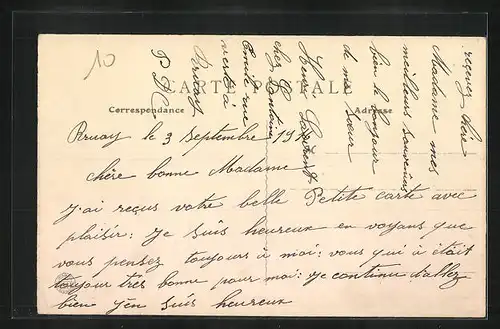 10
CARTE POSTALE
Correspondance
Adresse
Bruay le 3 septembre 191
chère bonne Madame
J'ai reçus votre belle Petite carte avec
plaisir: je suis heureux en voyans que
vous pensez toujours à moi: vous qui à était
toujour très bonne pour moi: je continu d'allez
bien j'en suis heureux
reçevez chère
Madame mes
meilleurs souvenirs
bien le bonjour
de ma sœur
Henri Laurent
chez Lontaine
Emile rue
verte à
Bruay
P D C